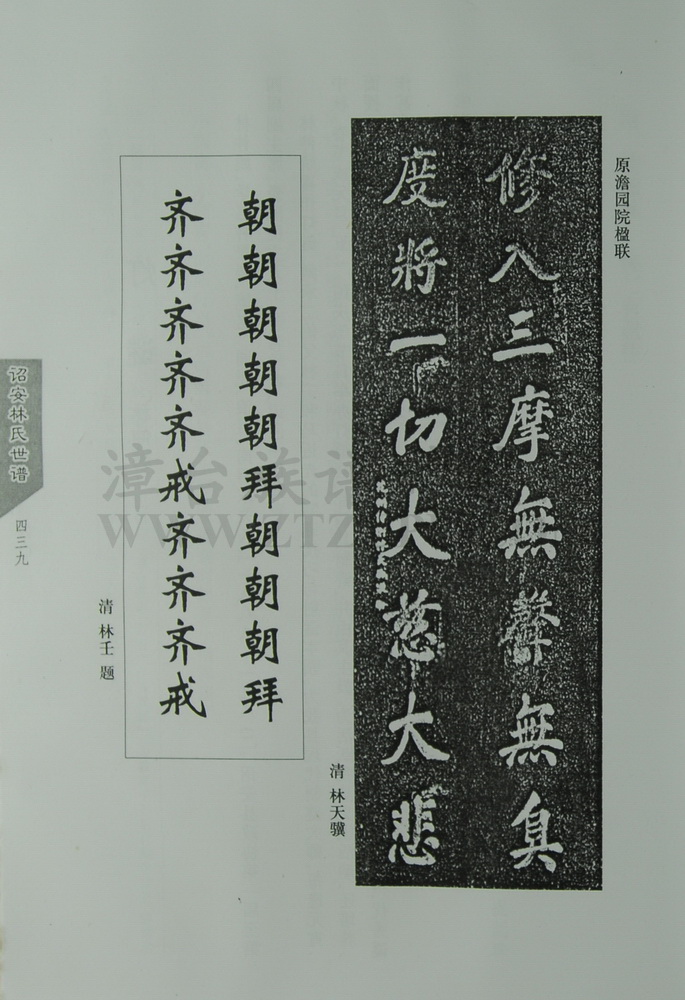 原澹园院楹联
修入三摩無聲無臭
度將一切大慈大悲
清 林天骥
朝朝朝朝朝拜朝朝朝拜
齐齐齐齐齐戒齐齐齐戒
清 林壬 题
诏安林氏世谱
四三九
漳台族谱
WWW.ZTZ